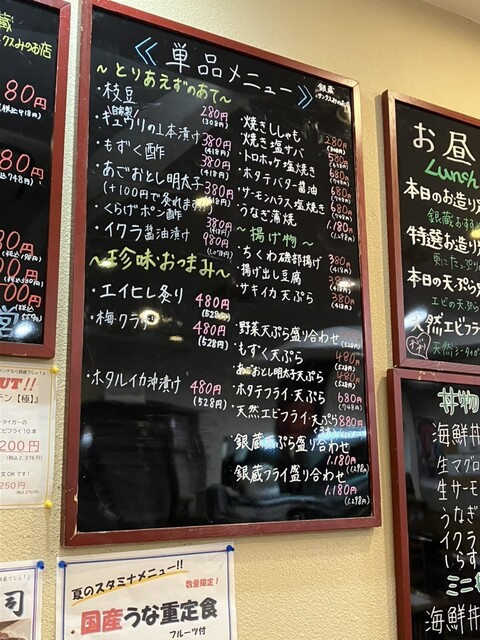 単品メニュー
銀蔵
～とりあえずのあて～
・枝豆 280円
(308円)
・自家製キュウリの1本漬け 380円
(418円)
・もずく酢 380円
(418円)
・あごおとし明太子 380円
(+100円で炙れます) (418円)
・くらげポン酢 380円
(418円)
・イクラ醤油漬け 980円
～珍味おつまみ～
・エイヒレ炙り 480円
(528円)
・梅クラゲ 480円
(528円)
・ホタルイカ沖漬け 480円
(528円)
・焼きししゃも 280円
・焼き塩サバ 580円
・トロホッケ塩焼き 680円
・ホタテバター醤油 680円
・サーモンハラス塩焼き 680円
・うなぎ蒲焼 1,180円
(1,298円)
～揚げ物～
・ちくわ磯部揚げ 380円
(418円)
・揚げ出し豆腐 380円
(418円)
・サキイカ天ぷら 380円
(418円)
・野菜天ぷら盛り合わせ
(528円)
・もずく天ぷら 480円
(528円)
・あごおとし明太子天ぷら 480円
(528円)
・ホタテフライ・天ぷら 680円
(748円)
・天然エビフライ・天ぷら 880円
・銀蔵天ぷら盛り合わせ
1,180円
(1,298円)
・銀蔵フライ盛り合わせ
1,180円
(1,298円)
お昼
Lunsh
本日のお造り
銀蔵おすすめ
特選お造り
更にたっぷり
本日の天ぷら
エビの天ぷら
天然エビフライ
天然シータイガー
丼物
海鮮丼
生マグロ
生サーモン
うなぎ
イクラ
しらす
ミニ
海鮮丼
夏のスタミナメニュー!!
数量限定!
国産うな重定食
フルーツ付
司
みのお店
80円
80円
748円
円
円
00円
営
UT!!
チン【極】
タイガーの
エビフライ10本
200円
(税込2,376円)
文OKです!
250円
(税込270円)